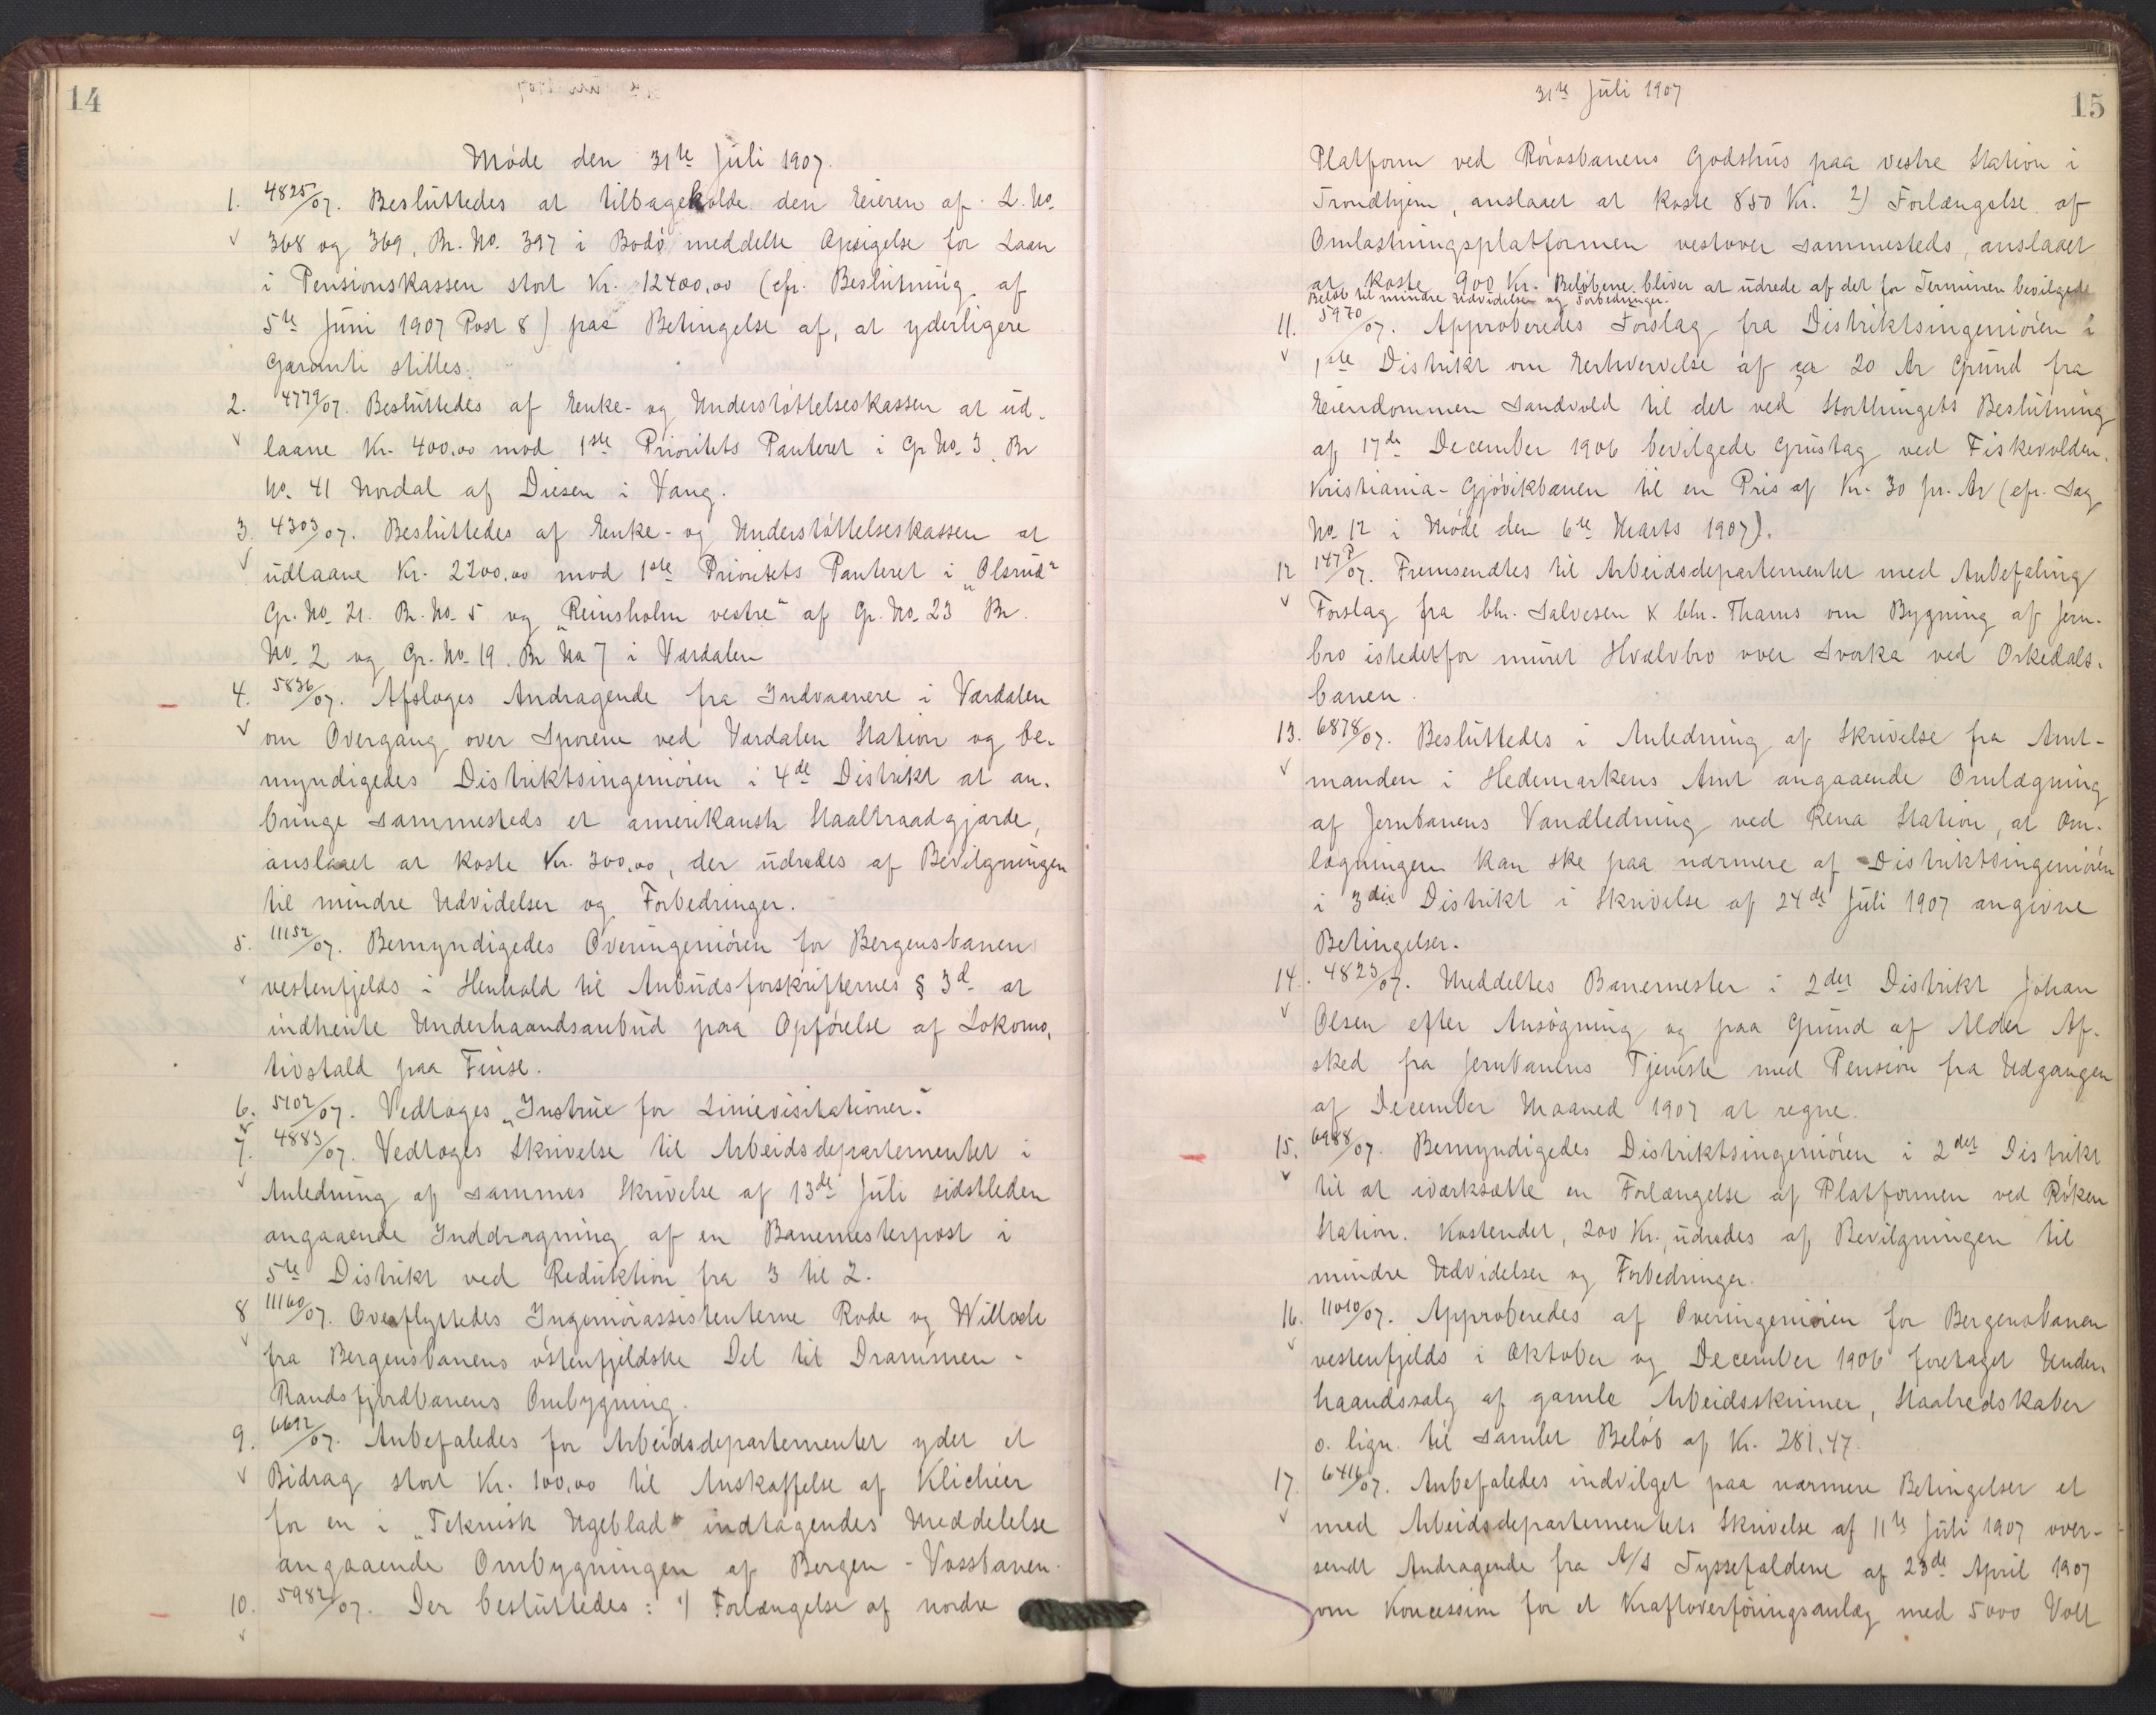 14
Møde den 31te Juli 1907.
1. 4825/07. Besluttedes at tilbageholde den Eieren af L. No.
368 og 369, Br. No. 397 i Bodø meddelte Opsigelse for Laan
i Pensionskassen stort Kr. 12400,00 (cfr. Beslutning af
5te Juni 1907 Post 8) paa Betingelse af, at yderligere
Garanti stilles.
2. 4779/07. Besluttedes af Enke- og Understøttelseskassen at ud-
laane Kr. 400,00 mod 1ste Prioritets Panteret i Gr No. 3, Br
No. 41 Nordal af Disen i Vang.
3. 4303/07. Besluttedes af Enke- og Understøttelseskassen at
udlaane Kr. 2200,00 mod 1ste Prioritets Panteret i „Olsrud"
Gr. No. 21. Br. No. 5 og „Reinsholm vestre" af Gr. No. 23 Br.
No. 2 og Gr. No. 19. Br No 7 i Værdalen
4. 5836/07. Afsloges Andragende fra Indvaanere i Værdalen
om Overgang over Sporene ved Værdalen Station og be-
myndigedes Distriktsingeniøren i 4de Distrikt at an-
bringe sammesteds et amerikansk Staaltraadgjærde,
anslaaet at koste Kr. 300,00, der udredes af Bevilgningen
til mindre Udvidelser og Forbedringer.
5. 11152/07. Bemyndigedes Overingeniøren for Bergensbanen
vestenfjelds i Henhold til Anbudsforskrifternes § 3d at
indhente Underhaandsanbud paa Opførelse af Lokomo-
tivstald paa Finse.
6. 5102/07. Vedtoges „Instrux for Linievisitationer."
7. 4883/07. Vedtoges Skrivelse til Arbeidsdepartementet i
Anledning af sammes Skrivelse af 13de Juli sidstleden
angaaende Inddragning af en Banemesterpost i
5te Distrikt ved Reduktion fra 3 til 2.
8 11160/07. Overflyttedes Ingeniørassistenterne Rode og Willoch
fra Bergensbanens østenfjeldske Del til Drammen-
Randsfjordbanens Ombygning.
9. 6692/07. Anbefaledes for Arbeidsdepartementet ydet et
Bidrag stort Kr. 100,00 til Anskaffelse af Klichéer
for en i „Teknisk Ugeblad" indtagendes Meddelelse
angaaende Ombygningen af Bergen-Vossbanen.
10. 5982/07. Der besluttedes: 1) Forlængelse af nordre
31te Juli 1907
15
Platform ved Rørosbanens Godshus paa vestre Station i
Trondhjem, anslaaet at koste 850 Kr. 2) Forlængelse af
Omlastningsplatformen vestover sammesteds, anslaaet
at koste 900 Kr. Beløbene bliver at udrede af det for Terminen bevilgede
Beløb til mindre Udvidelser og Forbedringer.
11. 5970/07. Approberedes Forslag fra Distriktsingeniøren i
1ste Distrikt om Erhvervelse af ca 20 Ar Grund fra
Eiendommen Sandvold til det ved Storthingets Beslutning
af 17de December 1906 bevilgede Grustag ved Fiskevolden,
Kristiania-Gjøvikbanen til en Pris af Kr. 30 pr. Ar (cfr. Sag
No. 12 i Møde den 6te Marts 1907).
12 147P/07. Fremsendtes til Arbeidsdepartementet med Anbefaling
Forslag fra hhr. Salvesen & hhr. Thams om Bygning af Jern-
bro istedetfor muret Hvælvbro over Svorka ved Orkedals-
banen.
13. 6878/07. Besluttedes i Anledning af Skrivelse fra Amt-
manden i Hedemarkens Amt angaaende Omlægning
af Jernbanens Vandledning ved Rena Station, at Om-
lægningen kan ske paa nærmere af Distriktsingeniøren
i 3die Distrikt i Skrivelse af 24de Juli 1907 angivne
Betingelser.
14. 4823/07. Meddeltes Banemester i 2det Distrikt Johan
Olsen efter Ansøgning og paa Grund af Alder Af-
sked fra Jernbanens Tjeneste med Pension fra Udgangen
af December Maaned 1907 at regne.
15. 6988/07. Bemyndigedes Distriktsingeniøren i 2det Distrikt
til at iværksætte en Forlængelse af Platformen ved Røken
Station. Kostendet, 200 Kr., udredes af Bevilgningen til
mindre Udvidelser og Forbedringer.
16. 11010/07. Approberedes af Overingeniøren for Bergensbanen
vestenfjelds i Oktober og December 1906 foretaget Under-
haandssalg af gamle Arbeidsskinner, Staalredskaber
o. lign. til samlet Beløb af Kr. 281,47.
17. 6416/07. Anbefaledes indvilget paa nærmere Betingelser et
med Arbeidsdepartementets Skrivelse af 11te Juli 1907 over-
sendt Andragende fra A/S Tyssefaldene af 23de April 1907
om Koncession for et Kraftoverføringsanlæg med 5000 Volt